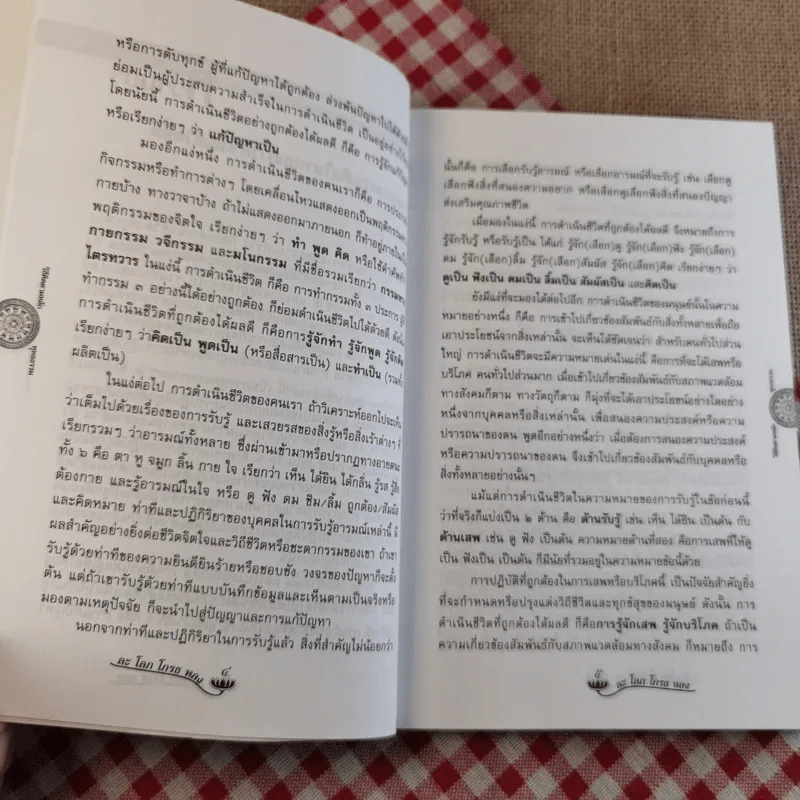 หรือการดับทุกข์ ผู้ที่แก้ปัญหาได้ถูกต้อง ล่วงพ้นปัญหาไปได้
ย่อมเป็นผู้ประสบความสำเร็จในการดำเนินชีวิต เป็นอยู่อย่าง
โดยนัยนี้ การดำเนินชีวิตอย่างถูกต้องได้ผลดี ก็คือ การรู้จักแก้ปัญหา
หรือเรียกง่ายๆ ว่า แก้ปัญหาเป็น
มองอีกแง่หนึ่ง การดำเนินชีวิตของคนเราก็คือ การประกอบ
กิจกรรมหรือทำการต่างๆ โดยเคลื่อนไหวแสดงออกเป็นพฤติกรรมทาง
กายบ้าง ทางวาจาบ้าง ถ้าไม่แสดงออกมาภายนอก ก็ทำอยู่ภายใน
พฤติกรรมของจิตใจ เรียกง่ายๆ ว่า ทำ พูด คิด หรือใช้คำศัพท์
กายกรรม วจีกรรม และมโนกรรม ที่มีชื่อรวมเรียกว่า กรรม
ไตรทวาร ในแง่นี้ การดำเนินชีวิต ก็คือ การทำกรรมทั้ง ๓ ประการ
ทำกรรม ๓ อย่างนี้ได้อย่างถูกต้อง ก็ย่อมดำเนินชีวิตไปได้ด้วยดี ดังนั้น
การดำเนินชีวิตที่ถูกต้องได้ผลดี ก็คือการรู้จักทำ รู้จักพูด รู้จักคิด
เรียกง่ายๆ ว่าคิดเป็น พูดเป็น (หรือสื่อสารเป็น) และทำเป็น (รวมทั้ง
ผลิตเป็น)
ในแง่ต่อไป การดำเนินชีวิตของคนเรา ถ้าวิเคราะห์ออกไปจะเห็น
ว่าเต็มไปด้วยเรื่องของการรับรู้ และเสวยรสของสิ่งรู้หรือสิ่งเร้าต่างๆ ที่
เรียกรวมๆ ว่าอารมณ์ทั้งหลาย ซึ่งผ่านเข้ามาหรือปรากฏทางอายตนะ
ทั้ง ๖ คือ ตา หู จมูก ลิ้น กาย ใจ เรียกว่า เห็น ได้ยิน ได้กลิ่น รู้รส รู้สิ่ง
ต้องกาย และรู้อารมณ์ในใจ หรือ ดู ฟัง ดม ชิม/ลิ้ม ถูกต้อง/สัมผัส
และคิดหมาย ท่าทีและปฏิกิริยาของบุคคลในการรับรู้อารมณ์เหล่านี้ มี
ผลสำคัญอย่างยิ่งต่อชีวิตจิตใจและวิถีชีวิตหรือชะตากรรมของเขา ถ้าเขา
รับรู้ด้วยท่าทีของความยินดียินร้ายหรือชอบชัง วงจรของปัญหาก็จะตั้ง
ต้น แต่ถ้าเขารับรู้ด้วยท่าทีแบบบันทึกข้อมูลและเห็นตามเป็นจริงหรือ
มองตามเหตุปัจจัย ก็จะนำไปสู่ปัญญาและการแก้ปัญหา
นอกจากท่าทีและปฏิกิริยาในการรับรู้แล้ว สิ่งที่สำคัญไม่น้อยกว่า
ละ โลภ โกรธ หลง ๔
นั้นก็คือ การเลือกรับรู้อารมณ์ หรือเลือกอารมณ์ที่จะรับรู้ เช่น เลือกดู
เลือกฟังสิ่งที่สนองความอยาก หรือเลือกดูเลือกฟังสิ่งที่สนองปัญญา
ส่งเสริมคุณภาพชีวิต
เมื่อมองในแง่นี้ การดำเนินชีวิตที่ถูกต้องได้ผลดี จึงหมายถึงการ
รู้จักรับรู้ หรือรับรู้เป็น ได้แก่ รู้จัก(เลือก)ดู รู้จัก(เลือก)ฟัง รู้จัก(เลือก)
ดม รู้จัก(เลือก)ลิ้ม รู้จัก(เลือก)สัมผัส รู้จัก(เลือก)คิด เรียกง่ายๆ ว่า
ดูเป็น ฟังเป็น ดมเป็น ลิ้มเป็น สัมผัสเป็น และคิดเป็น
ยังมีแง่ที่จะมองได้ต่อไปอีก การดำเนินชีวิตของมนุษย์นั้นในความ
หมายอย่างหนึ่ง ก็คือ การเข้าไปเกี่ยวข้องสัมพันธ์กับสิ่งทั้งหลายเพื่อถือ
เอาประโยชน์จากสิ่งเหล่านั้น จะเห็นได้ชัดเจนว่า สำหรับคนทั่วไปส่วน
ใหญ่ การดำเนินชีวิตจะมีความหมายเด่นในแง่นี้ คือการที่จะได้เสพหรือ
บริโภค คนทั่วไปส่วนมาก เมื่อเข้าไปเกี่ยวข้องสัมพันธ์กับสภาพแวดล้อม
ทางสังคมก็ตาม ทางวัตถุก็ตาม ก็มุ่งที่จะได้เอาประโยชน์อย่างใดอย่าง
หนึ่งจากบุคคลหรือสิ่งเหล่านั้น เพื่อสนองความประสงค์หรือความ
ปรารถนาของตน พูดอีกอย่างหนึ่งว่า เมื่อต้องการสนองความประสงค์
หรือความปรารถนาของตน จึงเข้าไปเกี่ยวข้องสัมพันธ์กับบุคคลหรือ
สิ่งทั้งหลายอย่างนั้นๆ
แม้แต่การดำเนินชีวิตในความหมายของการรับรู้ในข้อก่อนนี้
ว่าที่จริงก็แบ่งเป็น ๒ ด้าน คือ ด้านรับรู้ เช่น เห็น ได้ยิน เป็นต้น กับ
ด้านเสพ เช่น ดู ฟัง เป็นต้น ความหมายด้านที่สอง คือการเสพที่ให้ดู
เป็น ฟังเป็น เป็นต้น ก็มีนัยที่รวมอยู่ในความหมายข้อนี้ด้วย
การปฏิบัติที่ถูกต้องในการเสพหรือบริโภคนี้ เป็นปัจจัยสำคัญยิ่ง
ที่จะกำหนดหรือปรุงแต่งวิถีชีวิตและทุกข์สุขของมนุษย์ ดังนั้น การ
ดำเนินชีวิตที่ถูกต้องได้ผลดี ก็คือการรู้จักเสพ รู้จักบริโภค ถ้าเป็น
ความเกี่ยวข้องสัมพันธ์กับสภาพแวดล้อมทางสังคม ก็หมายถึง การ
๕ ละ โลภ โกรธ หลง